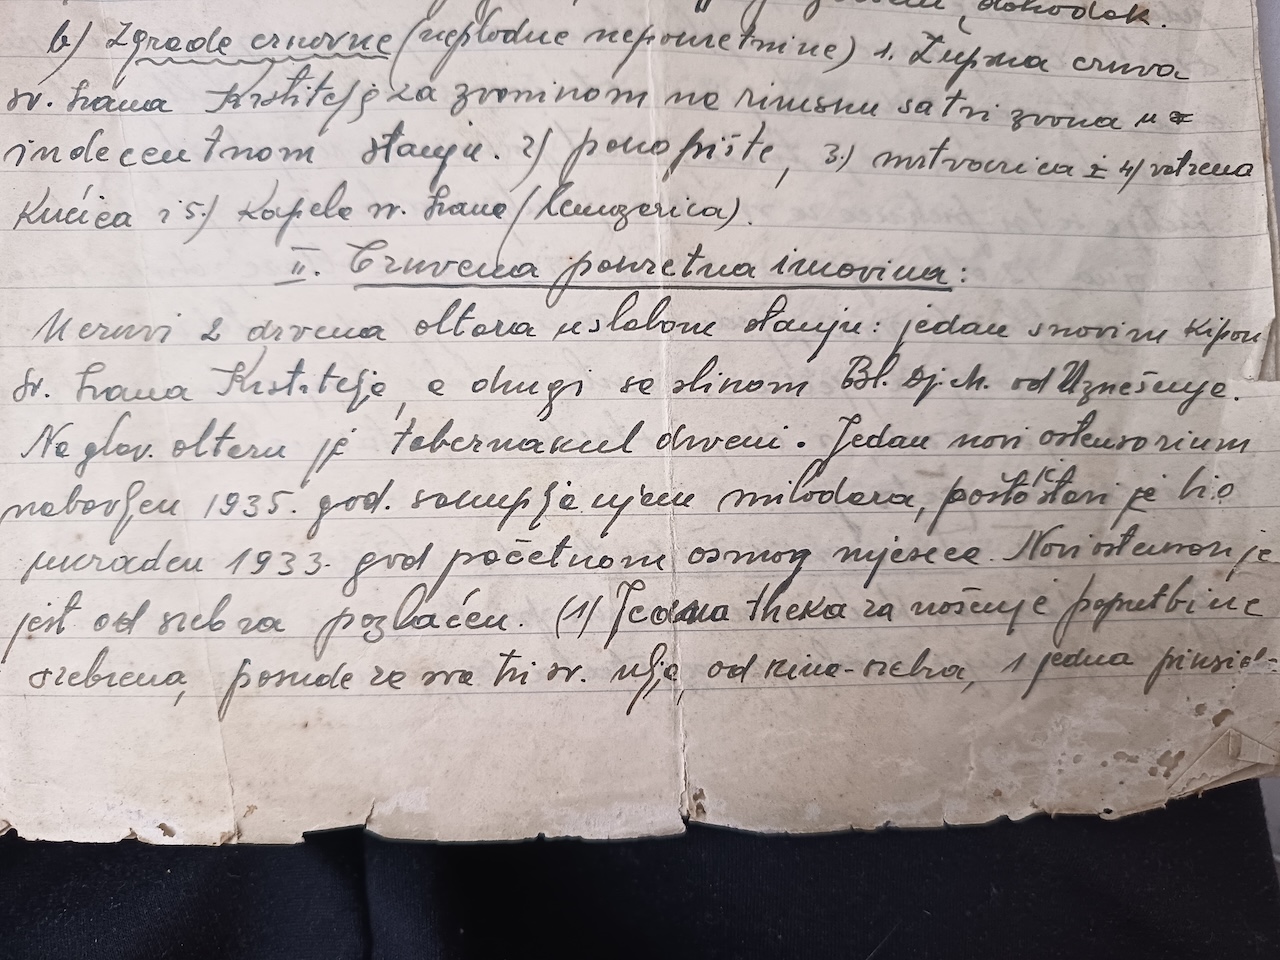 dohodak.
b) Zgrade crkvene (neplodne nepokretnine) 1. Župna crkva
sv. Ivana Krstitelja sa zvonikom na rimsku sa tri zvona u
indecentnom stanju. 2) ponopište, 3.) mrtvačnica i 4) vatrena
kućica i 5.) Kapela sv. Ivana
II. Crkvena pokretna imovina:
Mermi 2 drvena oltara u slabom stanju: jedan s novim kipom
sv. Ivana Krstitelja, a drugi sa slikom Bl. Dj. M. od Uznešenja.
Na glav. oltaru je tabernakul drveni. Jedan novi ostensorium
nabavljen 1935. god. sakupljenjem milodara, pošto stari je bio
ukraden 1933. god početkom osmog mjeseca. Novi ostensorij je
jest od srebra pozlaćen. (1) Jedna theka za nošenje poputbine
srebrena, posude za sva tri sv. ulja, od kina-srebra, 1 jedna piksid-